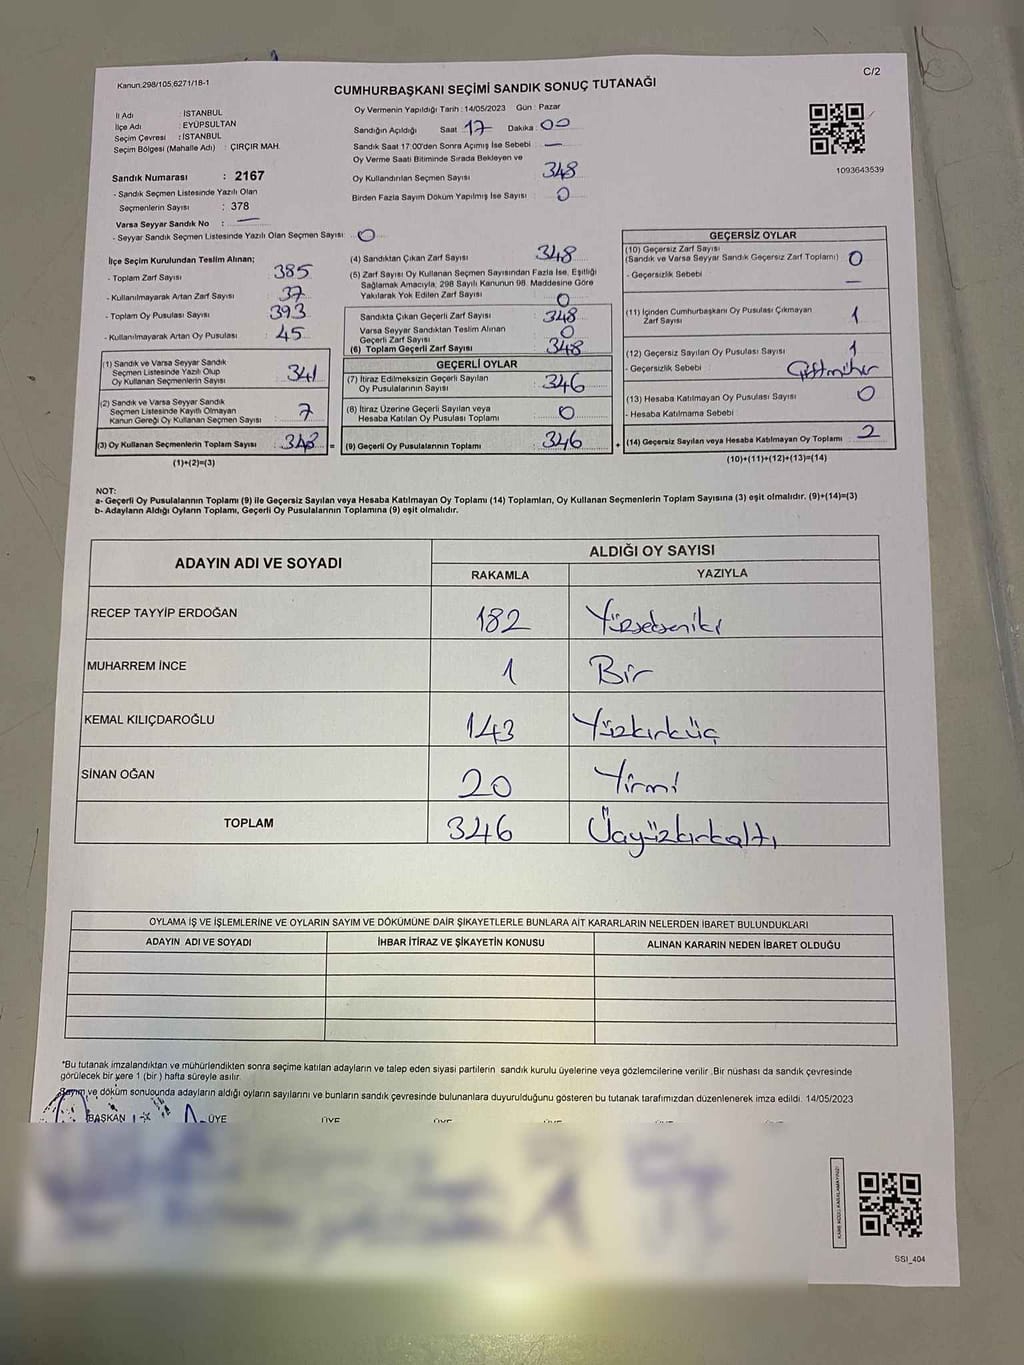 Kanun:298/105,6271/18-1
C/2
CUMHURBAŞKANI SEÇİMİ SANDIK SONUÇ TUTANAĞI
İl Adı : İSTANBUL
İlçe Adı : EYÜPSULTAN
Seçim Çevresi : İSTANBUL
Seçim Bölgesi (Mahalle Adı) : ÇIRÇIR MAH.
Sandık Numarası : 2167
- Sandık Seçmen Listesinde Yazılı Olan
Seçmenlerin Sayısı : 378
Varsa Seyyar Sandık No : —
- Seyyar Sandık Seçmen Listesinde Yazılı Olan Seçmen Sayısı: 0
Oy Vermenin Yapıldığı Tarih : 14/05/2023 Gün : Pazar
Sandığın Açıldığı Saat 17 Dakika : 00
Sandık Saat 17:00'den Sonra Açımış İse Sebebi : —
Oy Verme Saati Bitiminde Sırada Bekleyen ve
Oy Kullandırılan Seçmen Sayısı 348
Birden Fazla Sayım Döküm Yapılmış İse Sayısı : 0
1093643539
İlçe Seçim Kurulundan Teslim Alınan;
- Toplam Zarf Sayısı : 385
- Kullanılmayarak Artan Zarf Sayısı : 37
- Toplam Oy Pusulası Sayısı : 393
- Kullanılmayarak Artan Oy Pusulası : 45
(1) Sandık ve Varsa Seyyar Sandık
Seçmen Listesinde Yazılı Olup
Oy Kullanan Seçmenlerin Sayısı : 341
(2) Sandık ve Varsa Seyyar Sandık
Seçmen Listesinde Kayıtlı Olmayan
Kanun Gereği Oy Kullanan Seçmen Sayısı : 7
(3) Oy Kullanan Seçmenlerin Toplam Sayısı : 348 =
(1)+(2)=(3)
(4) Sandıktan Çıkan Zarf Sayısı : 348
(5) Zarf Sayısı Oy Kullanan Seçmen Sayısından Fazla İse, Eşitliği
Sağlamak Amacıyla; 298 Sayılı Kanunun 98. Maddesine Göre
Yakılarak Yok Edilen Zarf Sayısı : 0
Sandıkta Çıkan Geçerli Zarf Sayısı : 348
Varsa Seyyar Sandıktan Teslim Alınan
Geçerli Zarf Sayısı : 0
(6) Toplam Geçerli Zarf Sayısı : 348
GEÇERLİ OYLAR
(7) İtiraz Edilmeksizin Geçerli Sayılan
Oy Pusulalarının Sayısı : 346
(8) İtiraz Üzerine Geçerli Sayılan veya
Hesaba Katılan Oy Pusulası Toplamı : 0
(9) Geçerli Oy Pusulalarının Toplamı : 346 +
GEÇERSİZ OYLAR
(10) Geçersiz Zarf Sayısı
(Sandık ve Varsa Seyyar Sandık Geçersiz Zarf Toplamı) : 0
- Geçersizlik Sebebi : —
(11) İçinden Cumhurbaşkanı Oy Pusulası Çıkmayan
Zarf Sayısı : 1
(12) Geçersiz Sayılan Oy Pusulası Sayısı : 1
- Geçersizlik Sebebi :
(13) Hesaba Katılmayan Oy Pusulası Sayısı : 0
- Hesaba Katılmama Sebebi :
(14) Geçersiz Sayılan veya Hesaba Katılmayan Oy Toplamı : 2
(10)+(11)+(12)+(13)=(14)
NOT:
a- Geçerli Oy Pusulalarının Toplamı (9) ile Geçersiz Sayılan veya Hesaba Katılmayan Oy Toplamı (14) Toplamları, Oy Kullanan Seçmenlerin Toplam Sayısına (3) eşit olmalıdır. (9)+(14)=(3)
b- Adayların Aldığı Oyların Toplamı, Geçerli Oy Pusulalarının Toplamına (9) eşit olmalıdır.
ADAYIN ADI VE SOYADI
ALDIĞI OY SAYISI
RAKAMLA YAZIYLA
RECEP TAYYİP ERDOĞAN 182 Yüzsekseniki
MUHARREM İNCE 1 Bir
KEMAL KILIÇDAROĞLU 143 Yüzkırküç
SİNAN OĞAN 20 Yirmi
TOPLAM 346 Üçyüzkırkaltı
OYLAMA İŞ VE İŞLEMLERİNE VE OYLARIN SAYIM VE DÖKÜMÜNE DAİR ŞİKAYETLERLE BUNLARA AİT KARARLARIN NELERDEN İBARET BULUNDUKLARI
ADAYIN ADI VE SOYADI İHBAR İTİRAZ VE ŞİKAYETİN KONUSU ALINAN KARARIN NEDEN İBARET OLDUĞU
*Bu tutanak imzalandıktan ve mühürlendikten sonra seçime katılan adayların ve talep eden siyasi partilerin sandık kurulu üyelerine veya gözlemcilerine verilir .Bir nüshası da sandık çevresinde
görülecek bir yere 1 (bir ) hafta süreyle asılır.
Sayım ve döküm sonucunda adayların aldığı oyların sayılarını ve bunların sandık çevresinde bulunanlara duyurulduğunu gösteren bu tutanak tarafımızdan düzenlenerek imza edildi. 14/05/2023
BAŞKAN ÜYE ÜYE ÜYE ÜYE ÜYE ÜYE
SSI_404